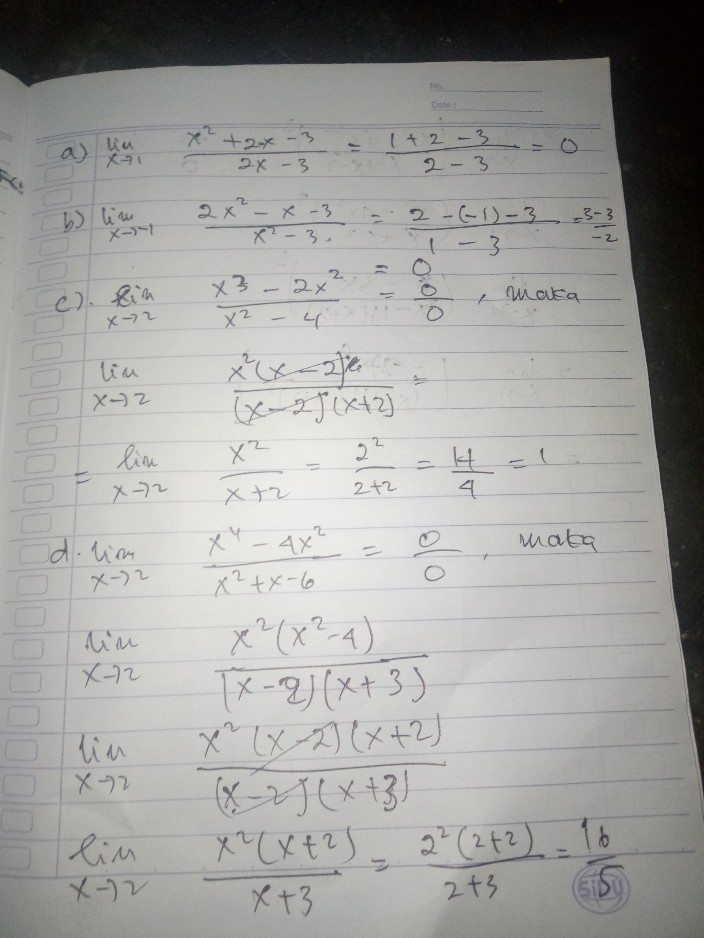 No.
Date :
a) lim x→1 x² + 2x - 3 / 2x - 3 = 1 + 2 - 3 / 2 - 3 = 0
b) lim x→-1 2x² - x - 3 / x² - 3. = 2 - (-1) - 3 / 1 - 3 = 3-3 / -2
= 0
c). lim x→2 x³ - 2x² / x² - 4 = 0 / 0 , maka
lim x→2 x² (x - 2) / (x - 2) (x+2) =
= lim x→2 x² / x+2 = 2² / 2+2 = 4 / 4 = 1
d. lim x→2 x⁴ - 4x² / x² + x - 6 = 0 / 0 , maka
lim x→2 x² (x² - 4) / (x - 2) (x + 3)
lim x→2 x² (x - 2) (x + 2) / (x - 2) (x + 3)
lim x→2 x² (x + 2) / x + 3 = 2² (2+2) / 2+3 = 16 / 5
SiDU